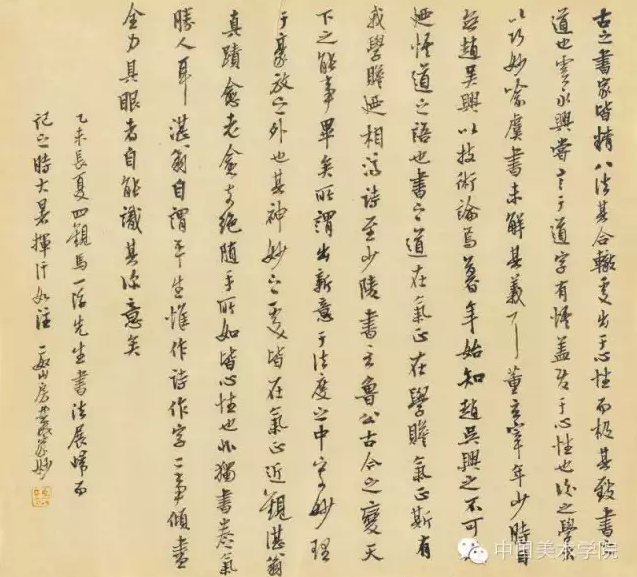 古之書家皆精八法其合轍處出于心性而極其致書
道也虞永興嘗言于道字有悟蓋發于心性也後之學
以巧妙喻虞書未解其義董玄宰年少時目
無趙吳興以技術論焉暮年始知趙吳興之不可
廼悟道之語也書之道在氣正在學贍氣正斯有
我學贍廼相濟詩至少陵書至魯公古今之變天
下之能事畢矣所謂出新意于法度之中寄妙理
于豪放之外也其神妙之處皆在氣正近觀湛翁
真蹟愈老愈奇絕隨手所如皆心性也非獨書卷氣
勝人耳湛翁自謂平生惟作詩作字二事傾盡
全力具眼者自能識其深意矣
乙未長夏四觀馬一浮先生書法展歸而
記之時大暑揮汗如注山房
中国美术学院